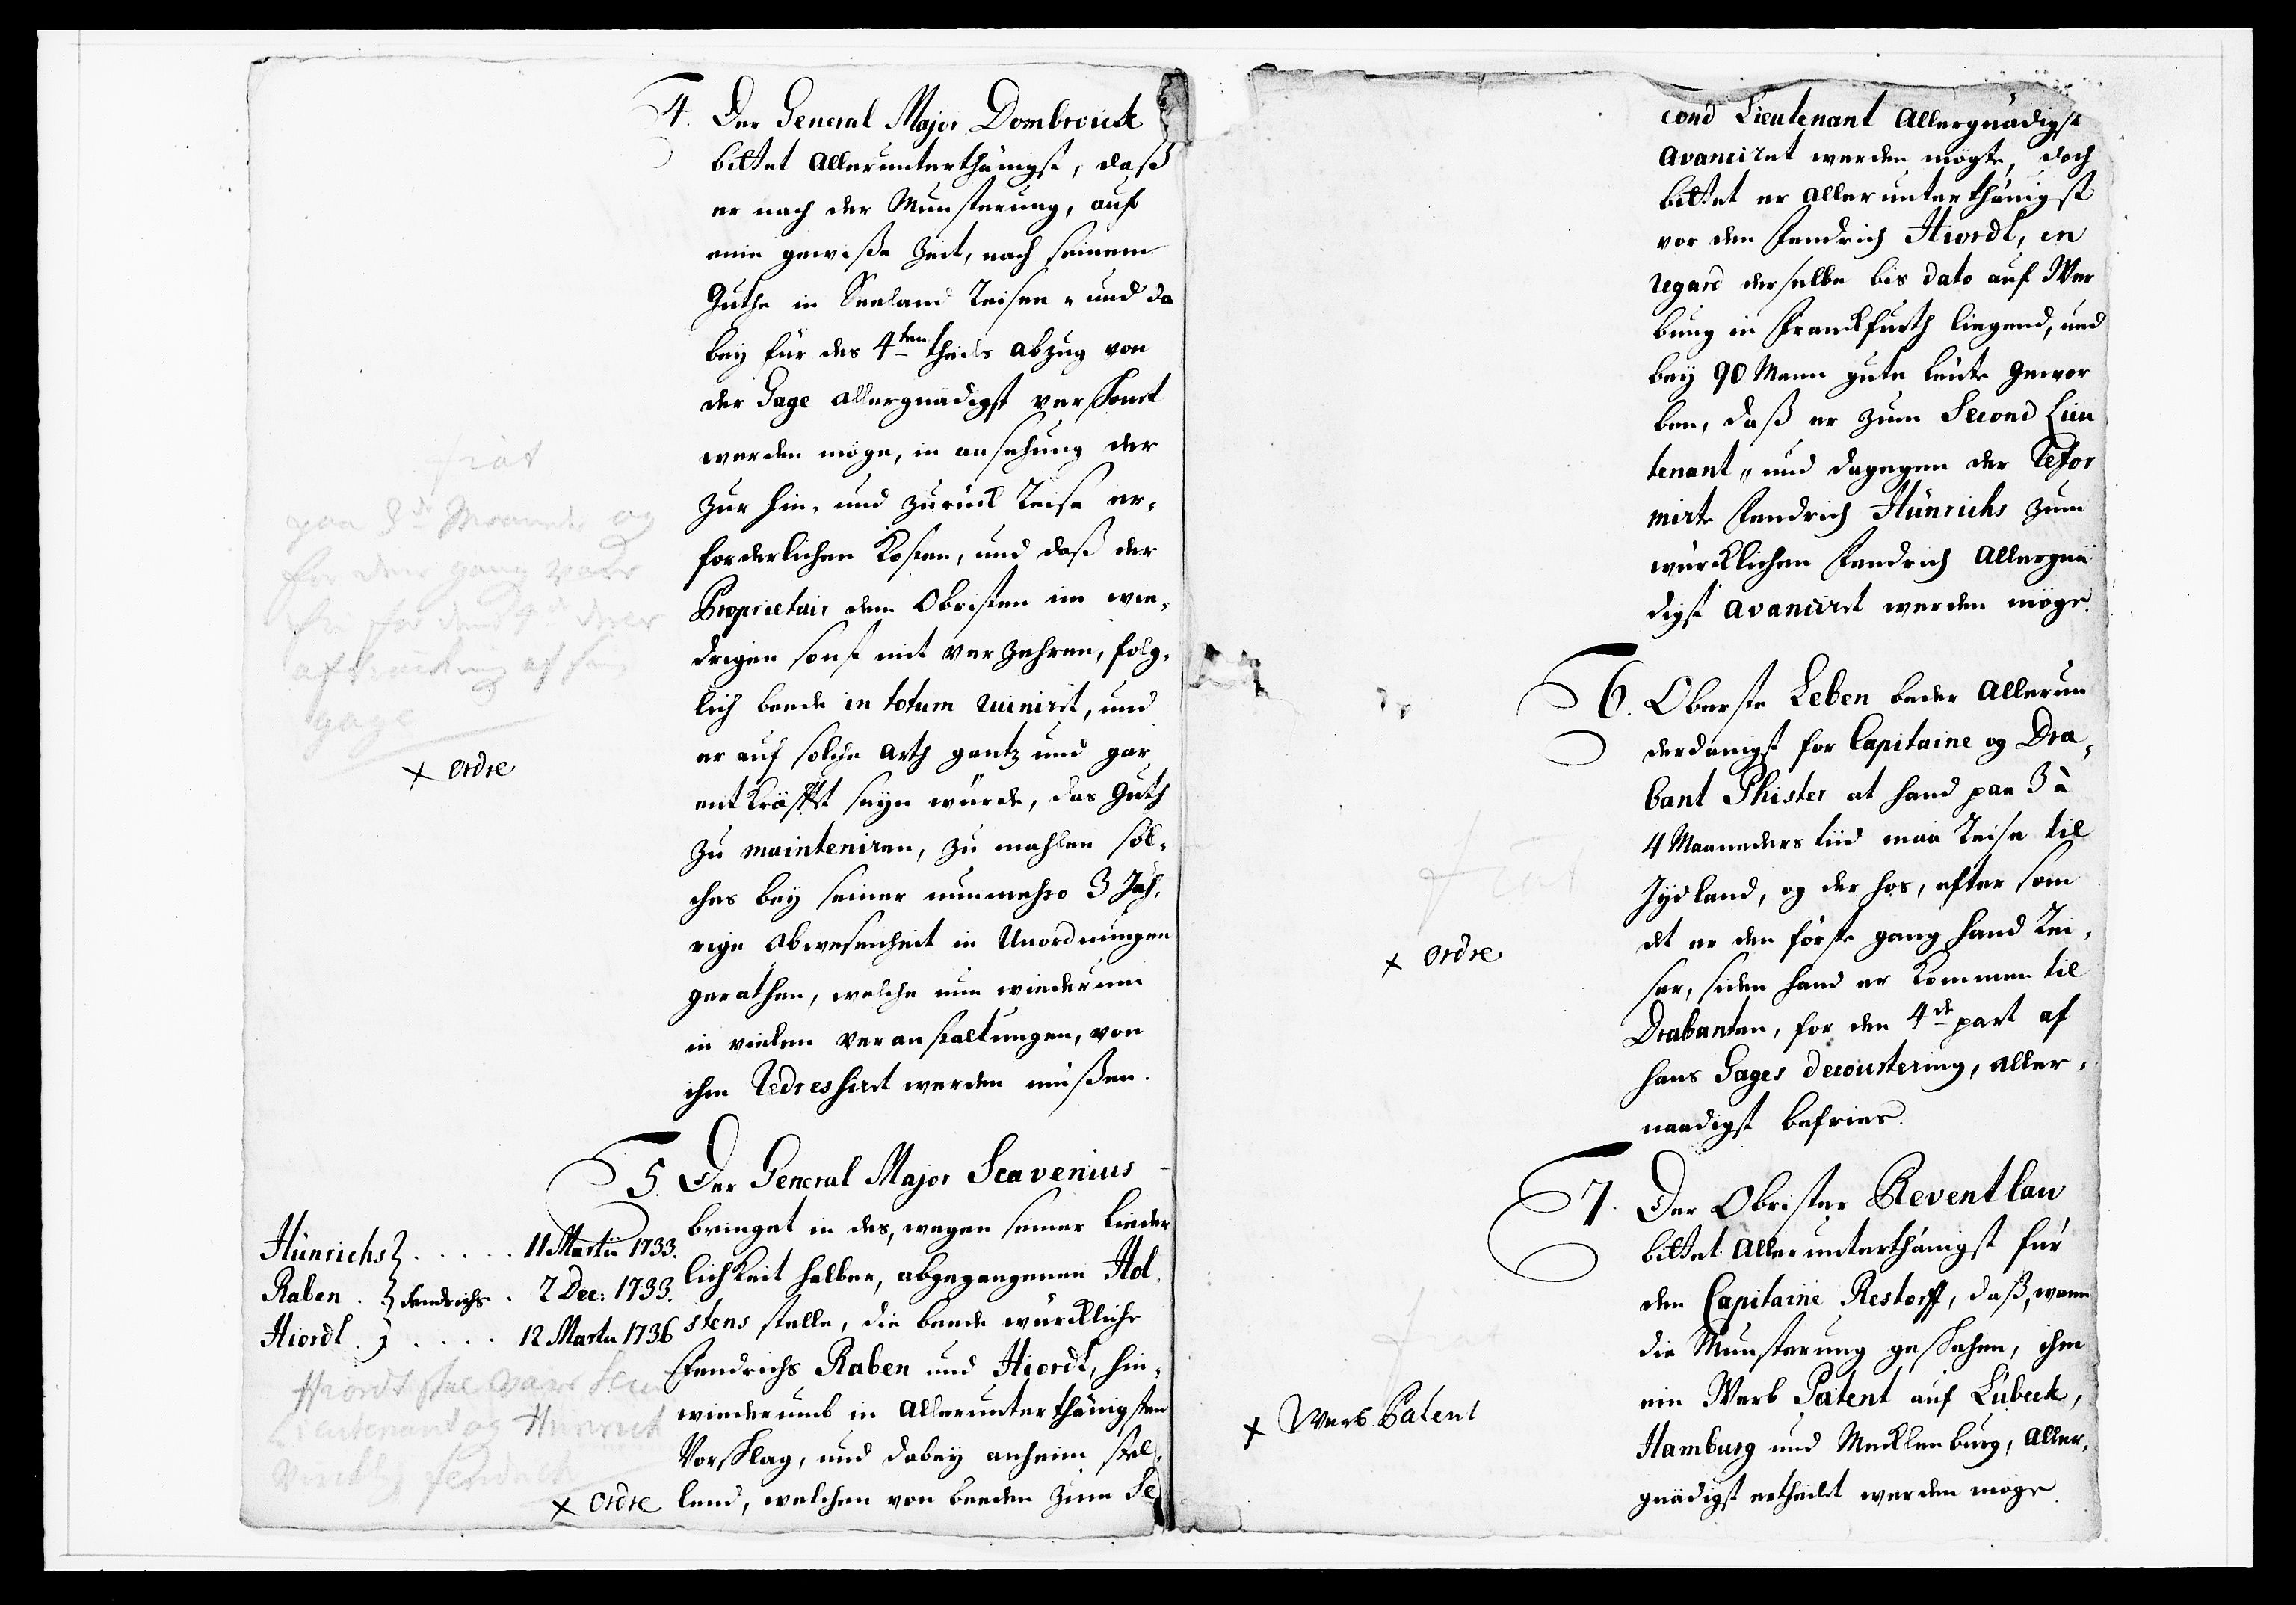 4. Der General Major Dombroick
bittet allerunterthänigst, daß
er nach der Munsterung, auf
eine gewisse Zeit, nach seinem
Guthe in Seeland reisen, und da
bey für des 4ten theils abzug von
der Gage allergnädigst verschont
werden möge, in ansehung der
zur hin- und zurück reise er-
forderlichen Kosten, und daß der
Proprietair dem Obristen im wie-
drigen sonst mit verzehren, folg-
lich beede in totum ruinirt, und
er auf solche arth gantz und gar
entkräfftet seyn würde, das Guth
zu mainteniren, zu mahlen sol-
ches bey seiner nunmehro 3 Jäh-
rige abwesenheit in Unordnungen
gerathen, welche nun wiederum
in vielen veranstaltungen, von
ihm redreshirt werden müßen.
fiat
paa 3de Maaneder og
for denne gang være
fri for den 4de deels
afkortning af sin
gage
x ordre
5. Der General Major Scavenius
bringet in des, wegen seiner lieder
lichkeit halber, abgegangenen Hol
stens stelle, die beede würckliche
Fendrichs Raben und Hiordt, hin-
wiederumb in allerunterthänigsten
Vorschlag, und dabey anheim stel-
lend, welchen von beeden zum Se
Hünrichs } ..... 11 Martii 1733.
Raben . } Fendrichs . 2 Dec: 1733.
Hiordt . } .... 12 Martii 1736
Hiordt skal være Secu
Lieutenant og Hünrich
Vircklig fendrich
x ordre
cond Lieutenant allergnädigst
avanciret werden mögte, doch
bittet er allerunterthänigst
vor den Fendrich Hiordt, en
regard derselbe bis dato auf Wer
bung in Franckfurth liegend, und
bey 90 Mann gute leute gewor
ben, daß er zum Second Lieu
tenant, und dagegen der Refor
mirte Fendrich Hünrichs zum
würcklichen Fendrich Allergnä
digst avancirt werden möge.
6. Oberste Leben beder allerun
derdanigst for Capitaine og Dra-
bant Phister at hand paa 3 à
4 Maaneders tiid maa reise til
Jydland, og der hos, efter som
det er den förste gang hand rei-
ser, siden hand er kommen til
Drabanten, for den 4de part af
hans Gages decourtering, aller-
naadigst befries.
fiat
x ordre
7. Der Obrister Reventlau
bittet allerunterthänigst für
den Capitaine Restorff, daß, wann
die Munsterung geschehen, ihm
ein Werb Patent auf Lübeck,
Hamburg und Mecklenburg, aller-
gnädigst ertheilet werden möge.
fiat
x Werb Patent